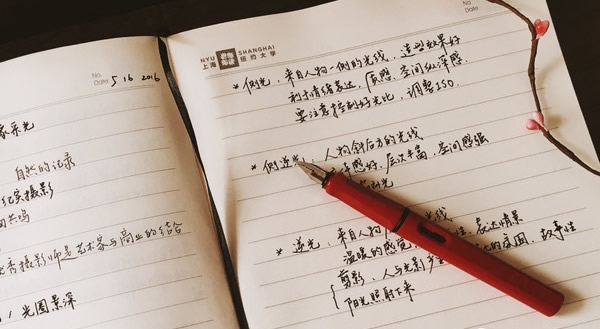 No.
Date 5 16 2016
自然的记录
纪实摄影
摄影师是艺术家与商业的结合
光圈景深
No.
Date
NYU SHANGHAI
上海 纽约大学
* 侧光,来自人物一侧的光线,造型效果好
利于情绪表达,质感、空间纵深感.
要注意控制好光比,调整ISO.
* 侧逆光 人物斜后方的光线
感好,层次丰富,空间感强
* 逆光,来自人物 光线
温暖的感觉 表达情景
剪影、人与光影 的氛围,故事性
阳光照射下来